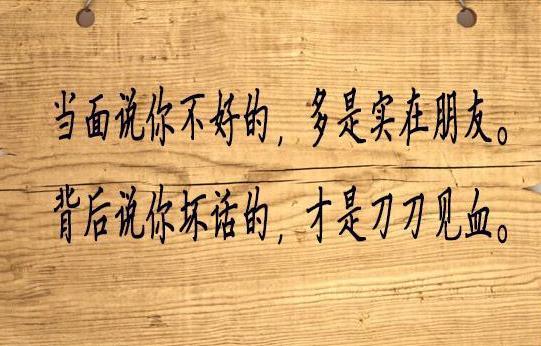 当面说你不好的，多是实在朋友。
背后说你坏话的，才是刀刀见血。